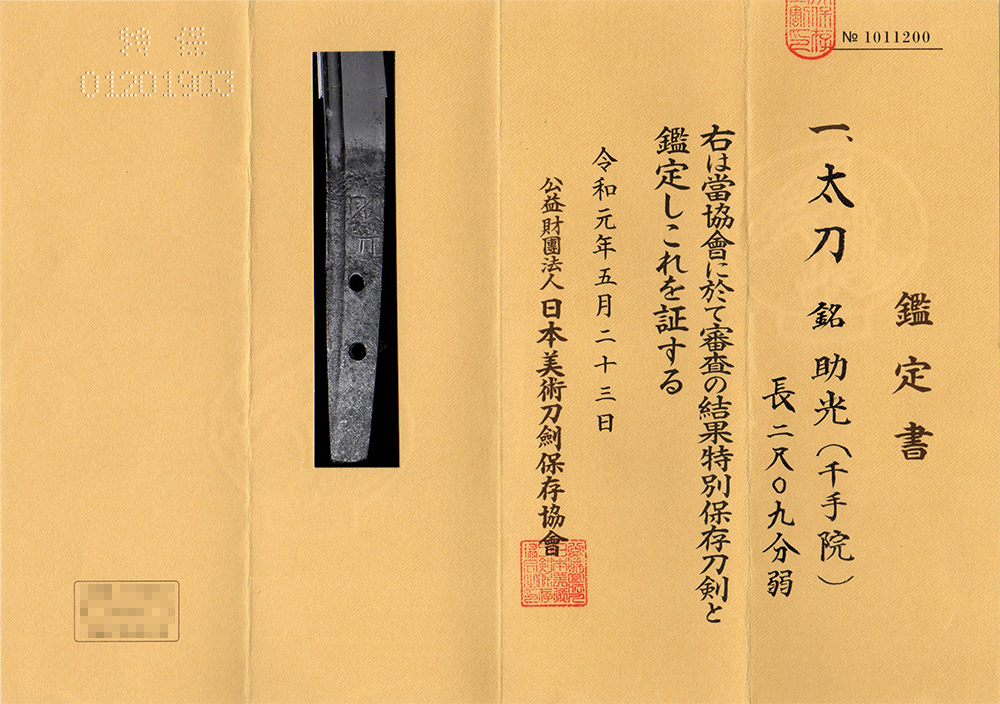 № 1011200
鑑定書
一、太刀 銘 助光(千手院)
長二尺〇九分弱
右は當協會に於て審査の結果特別保存刀剣と
鑑定しこれを証する
令和元年五月二十三日
公益財團法人 日本美術刀劍保存協會
特保
01201903